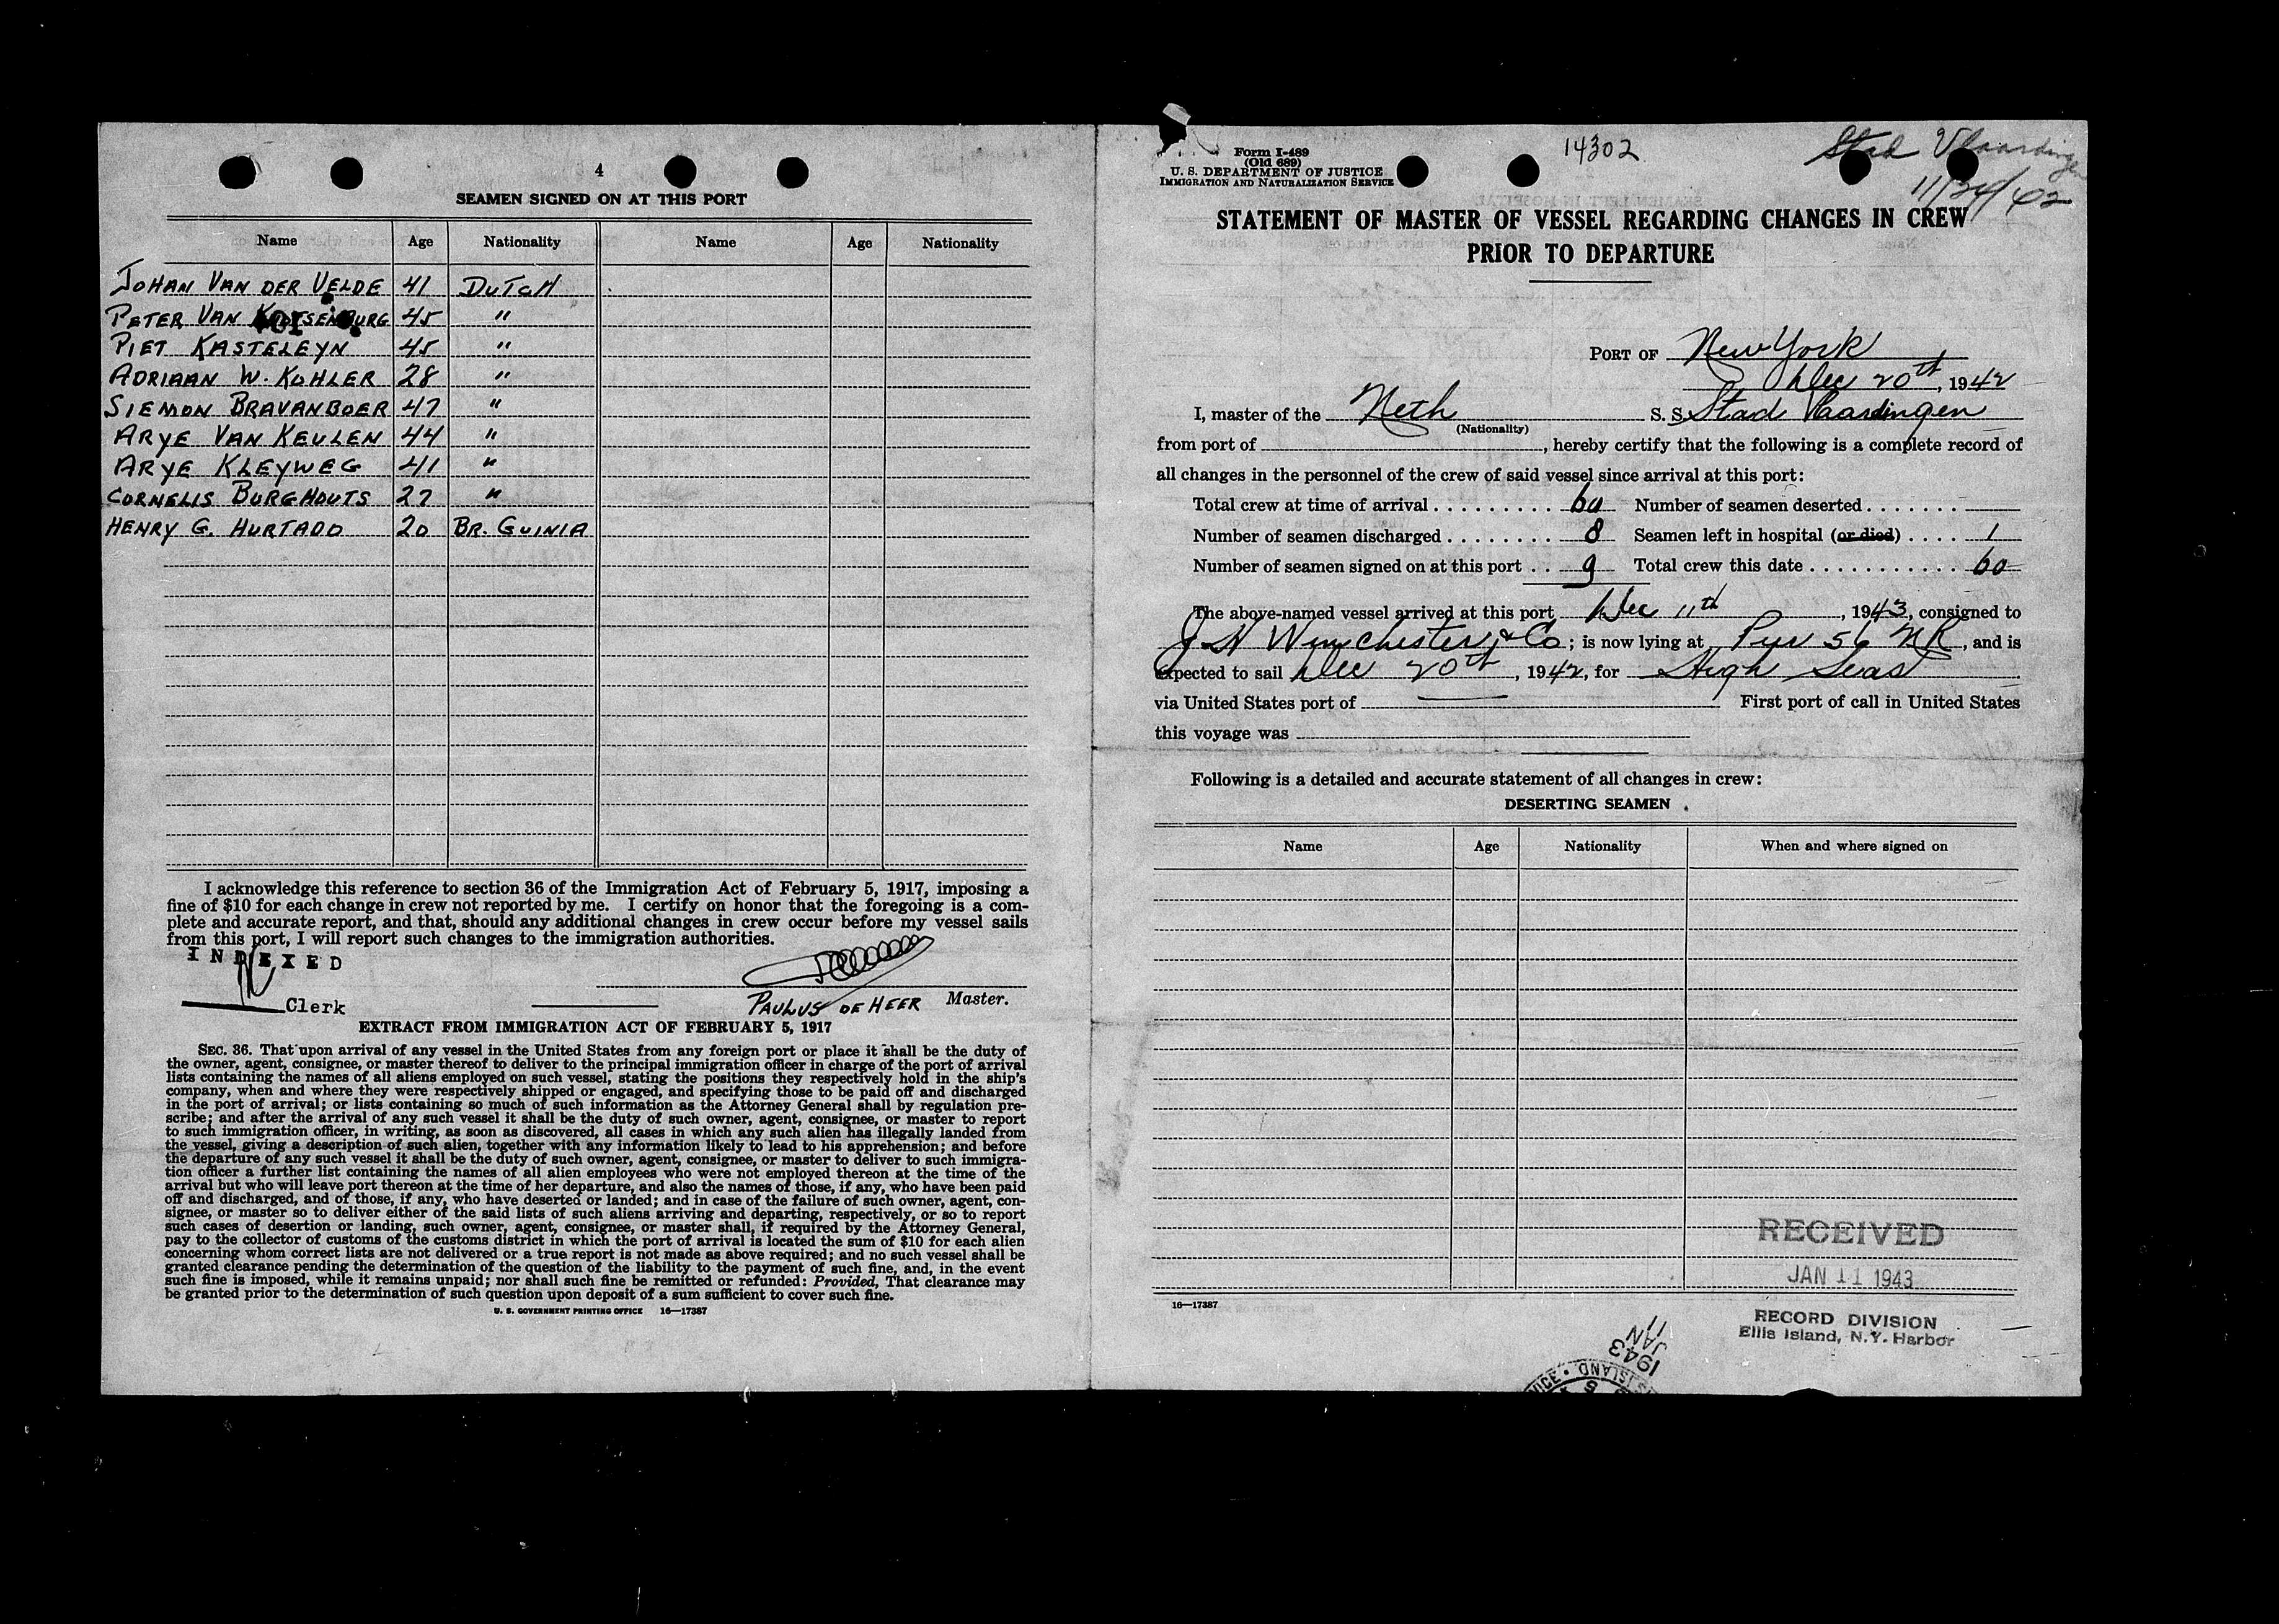 4
SEAMEN SIGNED ON AT THIS PORT
Name Age Nationality Name Age Nationality
JOHAN VAN DER VELDE 41 DUTCH
PETER VAN 45 "
PIET KASTELEYN 45 "
ADRIAAN W. KOHLER 28 "
SIEMON BRAVANBOER 47 "
ARYE VAN KEULEN 44 "
ARYE KLEYWEG 41 "
CORNELIS BURGHOUTS 27 "
HENRY G. HURTADO 20 BR. GUINIA
I acknowledge this reference to section 36 of the Immigration Act of February 5, 1917, imposing a
fine of $10 for each change in crew not reported by me. I certify on honor that the foregoing is a com-
plete and accurate report, and that, should any additional changes in crew occur before my vessel sails
from this port, I will report such changes to the immigration authorities.
INDEXED
Clerk
PAULUS DE HEER Master.
EXTRACT FROM IMMIGRATION ACT OF FEBRUARY 5, 1917
SEC. 36. That upon arrival of any vessel in the United States from any foreign port or place it shall be the duty of
the owner, agent, consignee, or master thereof to deliver to the principal immigration officer in charge of the port of arrival
lists containing the names of all aliens employed on such vessel, stating the positions they respectively hold in the ship's
company, when and where they were respectively shipped or engaged, and specifying those to be paid off and discharged
in the port of arrival; or lists containing so much of such information as the Attorney General shall by regulation pre-
scribe; and after the arrival of any such vessel it shall be the duty of such owner, agent, consignee, or master to report
to such immigration officer, in writing, as soon as discovered, all cases in which any such alien has illegally landed from
the vessel, giving a description of such alien, together with any information likely to lead to his apprehension; and before
the departure of any such vessel it shall be the duty of such owner, agent, consignee, or master to deliver to such immigra-
tion officer a further list containing the names of all alien employees who were not employed thereon at the time of the
arrival but who will leave port thereon at the time of her departure, and also the names of those, if any, who have been paid
off and discharged, and of those, if any, who have deserted or landed; and in case of the failure of such owner, agent, con-
signee, or master so to deliver either of the said lists of such aliens arriving and departing, respectively, or so to report
such cases of desertion or landing, such owner, agent, consignee, or master shall, if required by the Attorney General,
pay to the collector of customs of the customs district in which the port of arrival is located the sum of $10 for each alien
concerning whom correct lists are not delivered or a true report is not made as above required; and no such vessel shall be
granted clearance pending the determination of the question of the liability to the payment of such fine, and, in the event
such fine is imposed, while it remains unpaid; nor shall such fine be remitted or refunded: Provided, That clearance may
be granted prior to the determination of such question upon deposit of a sum sufficient to cover such fine.
U. S. GOVERNMENT PRINTING OFFICE 16—17387
Form I-489
(Old 689)
U. S. DEPARTMENT OF JUSTICE
IMMIGRATION AND NATURALIZATION SERVICE
14302
Stad Vlaardingen
STATEMENT OF MASTER OF VESSEL REGARDING CHANGES IN CREW
PRIOR TO DEPARTURE
PORT OF New York
Dec 20th, 1942
I, master of the Neth S. S. Stad Vlaardingen
(Nationality)
from port of , hereby certify that the following is a complete record of
all changes in the personnel of the crew of said vessel since arrival at this port:
Total crew at time of arrival . . . . . . . . . . 60 Number of seamen deserted . . . . . . .
Number of seamen discharged . . . . . . . . 8 Seamen left in hospital (or died) . . . . 1
Number of seamen signed on at this port . . 9 Total crew this date . . . . . . . . . . . . 60
The above-named vessel arrived at this port Dec 11th, 1943, consigned to
J H Winchester & Co; is now lying at Pier 56 NR, and is
expected to sail Dec 20th, 1942, for High Seas
via United States port of First port of call in United States
this voyage was
Following is a detailed and accurate statement of all changes in crew:
DESERTING SEAMEN
Name Age Nationality When and where signed on
RECEIVED
JAN 11 1943
16—17387
RECORD DIVISION
Ellis Island, N.Y. Harbor
1943
JAN
11